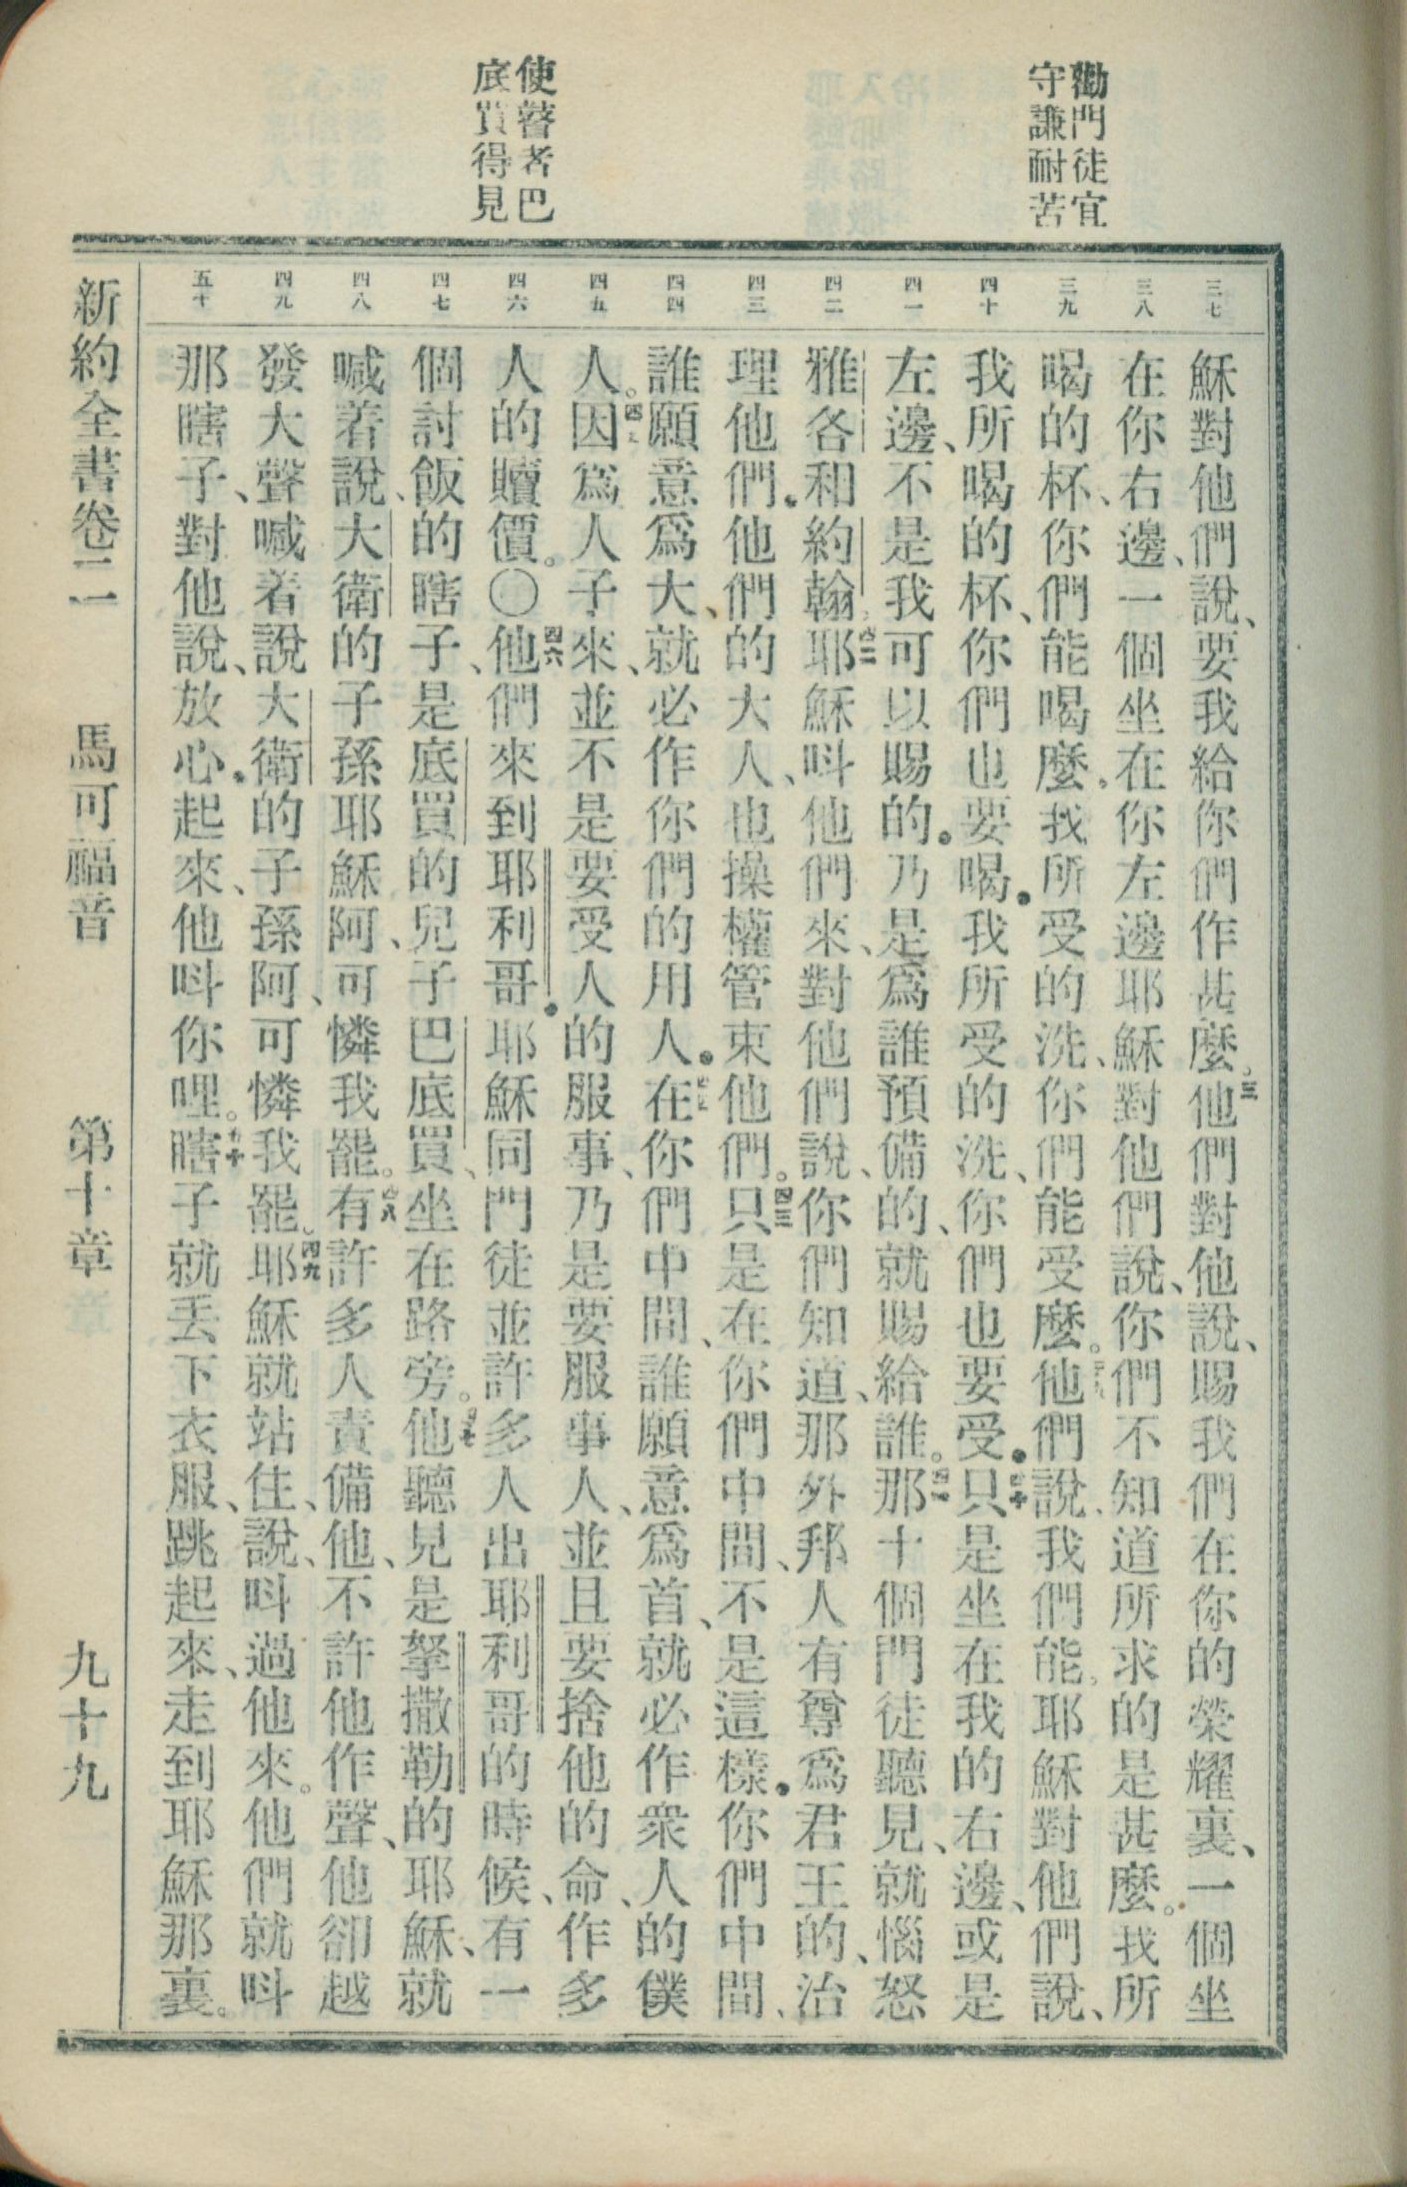 勸門徒宜
守謙耐苦
使瞽者巴
底買得見
三七
三八
三九
四十
四一
四二
四三
四四
四五
四六
四七
四八
四九
五十
穌對他們說、要我給你們作甚麼。他們對他說、賜我們在你的榮耀裏、一個坐
在你右邊、一個坐在你左邊耶穌對他們說、你們不知道所求的是甚麼。我所
喝的杯、你們能喝麼。我所受的洗、你們能受麼。他們說、我們能。耶穌對他們說、
我所喝的杯、你們也要喝.我所受的洗、你們也要受.四十只是坐在我的右邊、或是
左邊、不是我可以賜的.乃是爲誰預備的、就賜給誰。四一那十個門徒聽見、就惱怒
雅各和約翰。四二耶穌呌他們來、對他們說、你們知道、那外邦人有尊爲君王的、治
理他們.他們的大人、也操權管束他們。四三只是在你們中間、不是這樣.你們中間、
誰願意爲大、就必作你們的用人.四四在你們中間、誰願意爲首、就必作衆人的僕
人。四五因爲人子來、並不是要受人的服事、乃是要服事人、並且要捨他的命、作多
人的贖價。〇四六他們來到耶利哥.耶穌同門徒並許多人出耶利哥的時候、有一
個討飯的瞎子、是底買的兒子巴底買、坐在路旁。四七他聽見是拏撒勒的耶穌、就
喊着說、大衛的子孫耶穌阿、可憐我罷。四八有許多人責備他、不許他作聲、他卻越
發大聲喊着說大衛的子孫阿、可憐我罷。四九耶穌就站住、說、呌過他來。他們就呌
那瞎子、對他說、放心.起來、他呌你哩。五十瞎子就丟下衣服、跳起來、走到耶穌那裏。
新約全書卷二　馬可福音　第十章　九十九